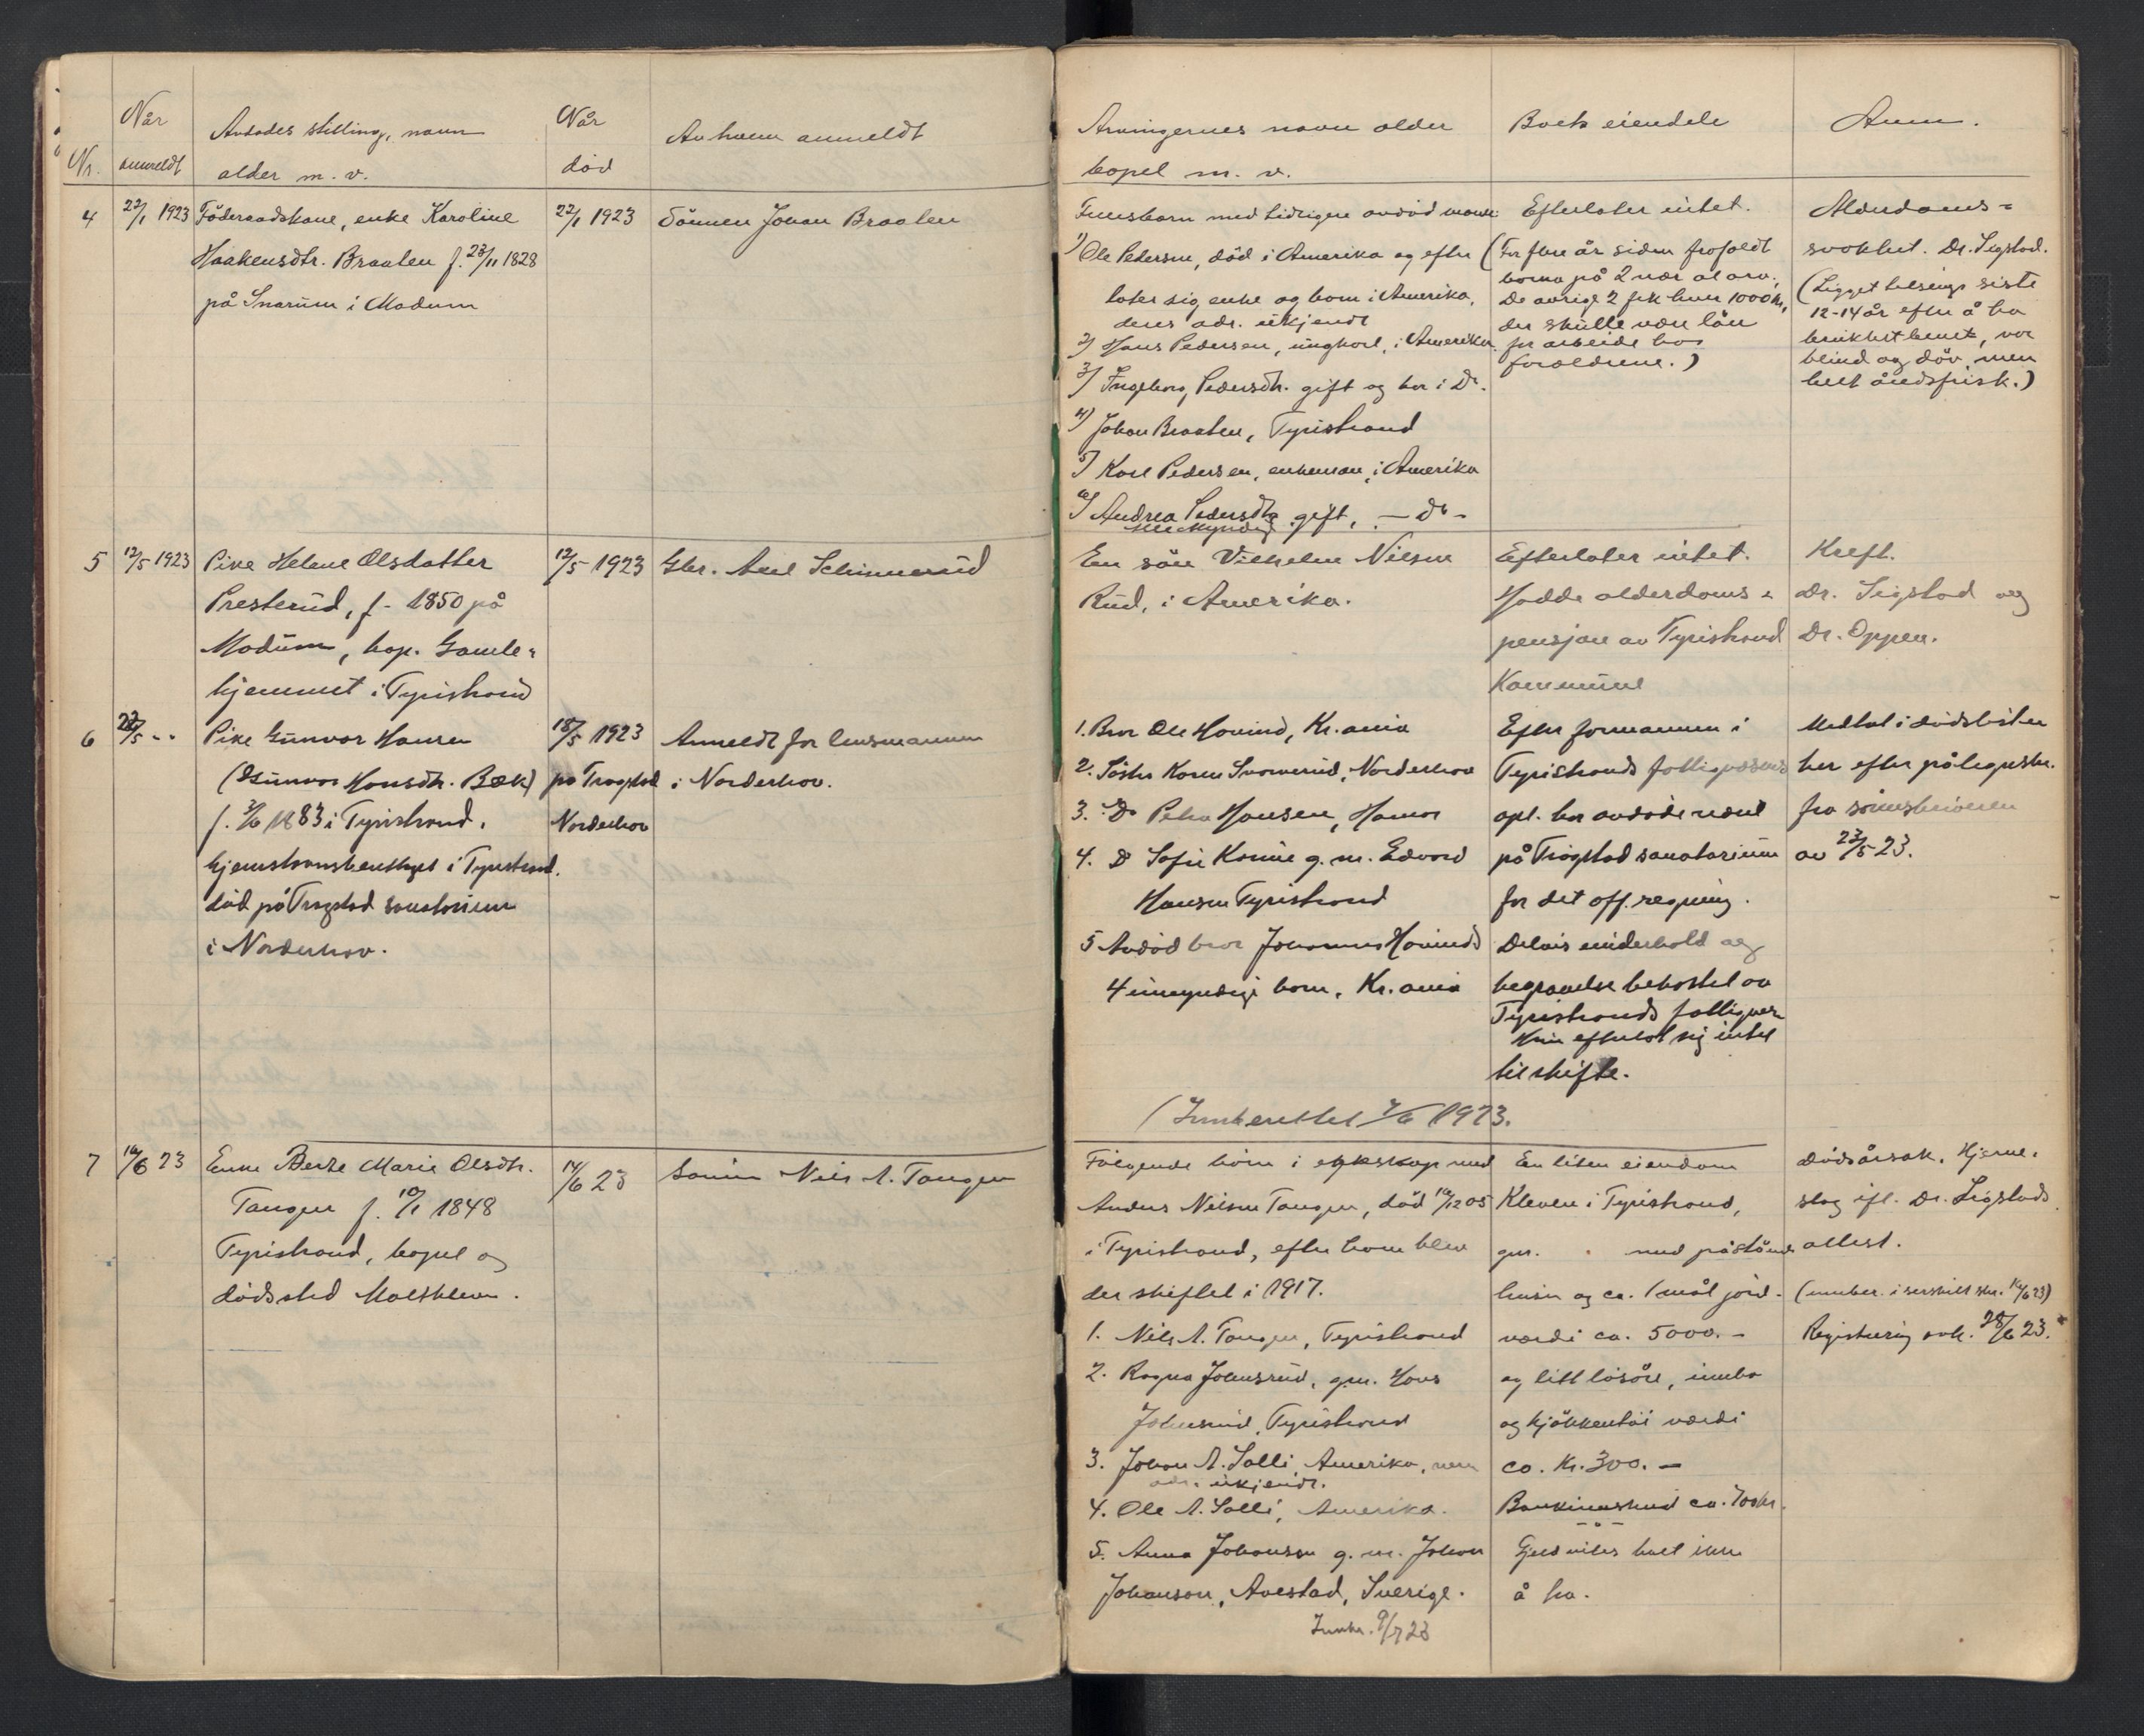 Nr.
Når
anmeldt
Avdødes stilling, navn
alder m. v.
Når
död
Av hvem anmeldt
4
22/1 1923
Föderaadskone, enke Karoline
Haakensdtr. Braaten f. 23/11 1828
på Snarum i Modum
22/1 1923
Sönnen Johan Braaten
5
12/5 1923
Pike Helene Olsdatter
Presterud, f. 1850 på
Modum, bop. Gamle-
hjemmet i Tyristrand
12/5 1923
Gbr. Axel Schinnerud
6
22/5 - -
Pike Gunvor Hansen
(Gunvor Hansdtr. Bæk)
f. 3/6 1883 i Tyristrand.
hjemstamsberettiget i Tyristrand.
död på Tragstad sanatorium
i Norderhov.
18/5 1923
på Tragstad
Norderhov
Anmeldt for lensmannen
i Norderhov.
7
14/6 23
Enke Berte Marie Olsdtr.
Tangen f. 10/1 1848
Tyristrand, bopel og
dödssted
14/6 23
Sönnen Nils A. Tangen
Arvingernes navn alder
bopel m. v.
Boets eiendele
Anm.
med tidligere avdöd mand:
1) Ole Pedersen, död i Amerika og efter
later sig enke og born i Amerika,
deres adr. ukjendt
2) Hans Pedersen, ungkarl, i Amerika
3) Ingeborg Pedersdtr. gift og bor i Do.
4) Johan Braaten, Tyristrand
5) Karl Pedersen, enkeman, i Amerika
6) Andrea Pedersdtr. gift, - Do -
Efterlater intet.
(For flere år siden
borna på 2 nær al arv.
De övrige 2 fik hver 1000 kr,
der skulle være lön
for arbeide hos
foreldrene.)
Alderdoms-
svakhet. Dr. Sigstad.
(Ligget tilsengs siste
12-14 år efter å ha
brukket benet, var
blind og döv, men
helt åndsfrisk.)
En sön Vilhelm Nilsen
Rud, i Amerika.
Efterlater intet.
Hadde alderdoms-
pensjon av Tyristrand
Kommune
Kreft.
Dr. Sigstad og
Dr. Oppen.
1. Bror Ole Hovind, Kr.ania
2. Söster Karen Svarverud, Norderhov
3. Do Petra Hansen, Hamar
4. Do Sofie Karine g. m. Edvard
Hansen Tyristrand
5 Avdöd bror Johannes Hovinds
4 umyndige born, Kr.ania
Efter formannen i
Tyristrands fattigvæsens
opl. har avdöde været
på Tragstad sanatorium
for det off. regning.
Delvis underhold og
begravelse bekostet av
Tyristrands fattigvæsen
Hun efterlot sig intet
til skifte.
Medtat i dödslisten
her efter
fra
av 23/5 23.
(Innberettet 7/6 1923.
Fölgende börn i ekteskap med
Anders Nilsen Tangen, död 14/12 05
i Tyristrand, efter ham blev
der skiftet i 1917.
1. Nils A. Tangen, Tyristrand
2. Ragna Johnsrud, gm. Hans
Johnsrud, Tyristrand
3. Johan A. Solli, Amerika,
adr. ukjendt.
4. Ole A. Solli, Amerika.
5. Anna Johansen g. m. Johan
Johanson, Avestad, Sverige.
Innber. 9/7 23
En liten eiendom
Kleven i Tyristrand,
gnr. med påstående
huser og ca. 1 mål jord.
værdi ca. 5000.-
og litt lösöre, innbo
og kjökkentöi værdi
ca. Kr. 300.-
Bankinnskud ca. 700 kr.
Gjeld vites helt ikke
å ha.
Dödsårsak, Hjerne-
slag ifl. Dr. Sigstads
attest.
(innber. i serskilt skr. 14/6 23)
Registrering avh. 28/6 23.